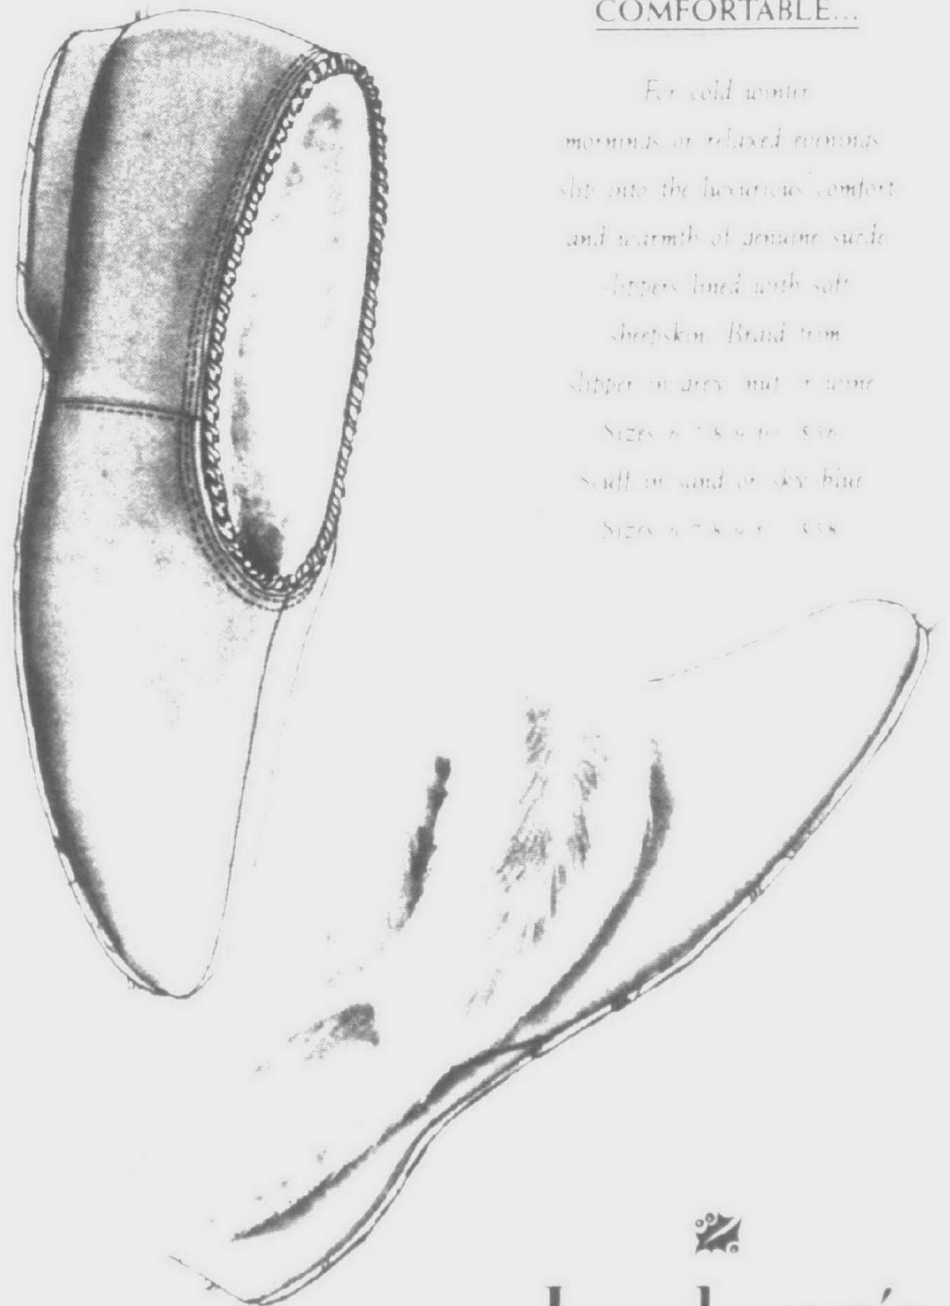 COMFORTABLE...
For cold winter
mornings or relaxed evenings
slip into the luxurious comfort
and warmth of genuine suede
slippers lined with soft
sheepskin. Braid trim
slipper in grey, nut or wine
Sizes
Scuff in sand or sky blue
Sizes